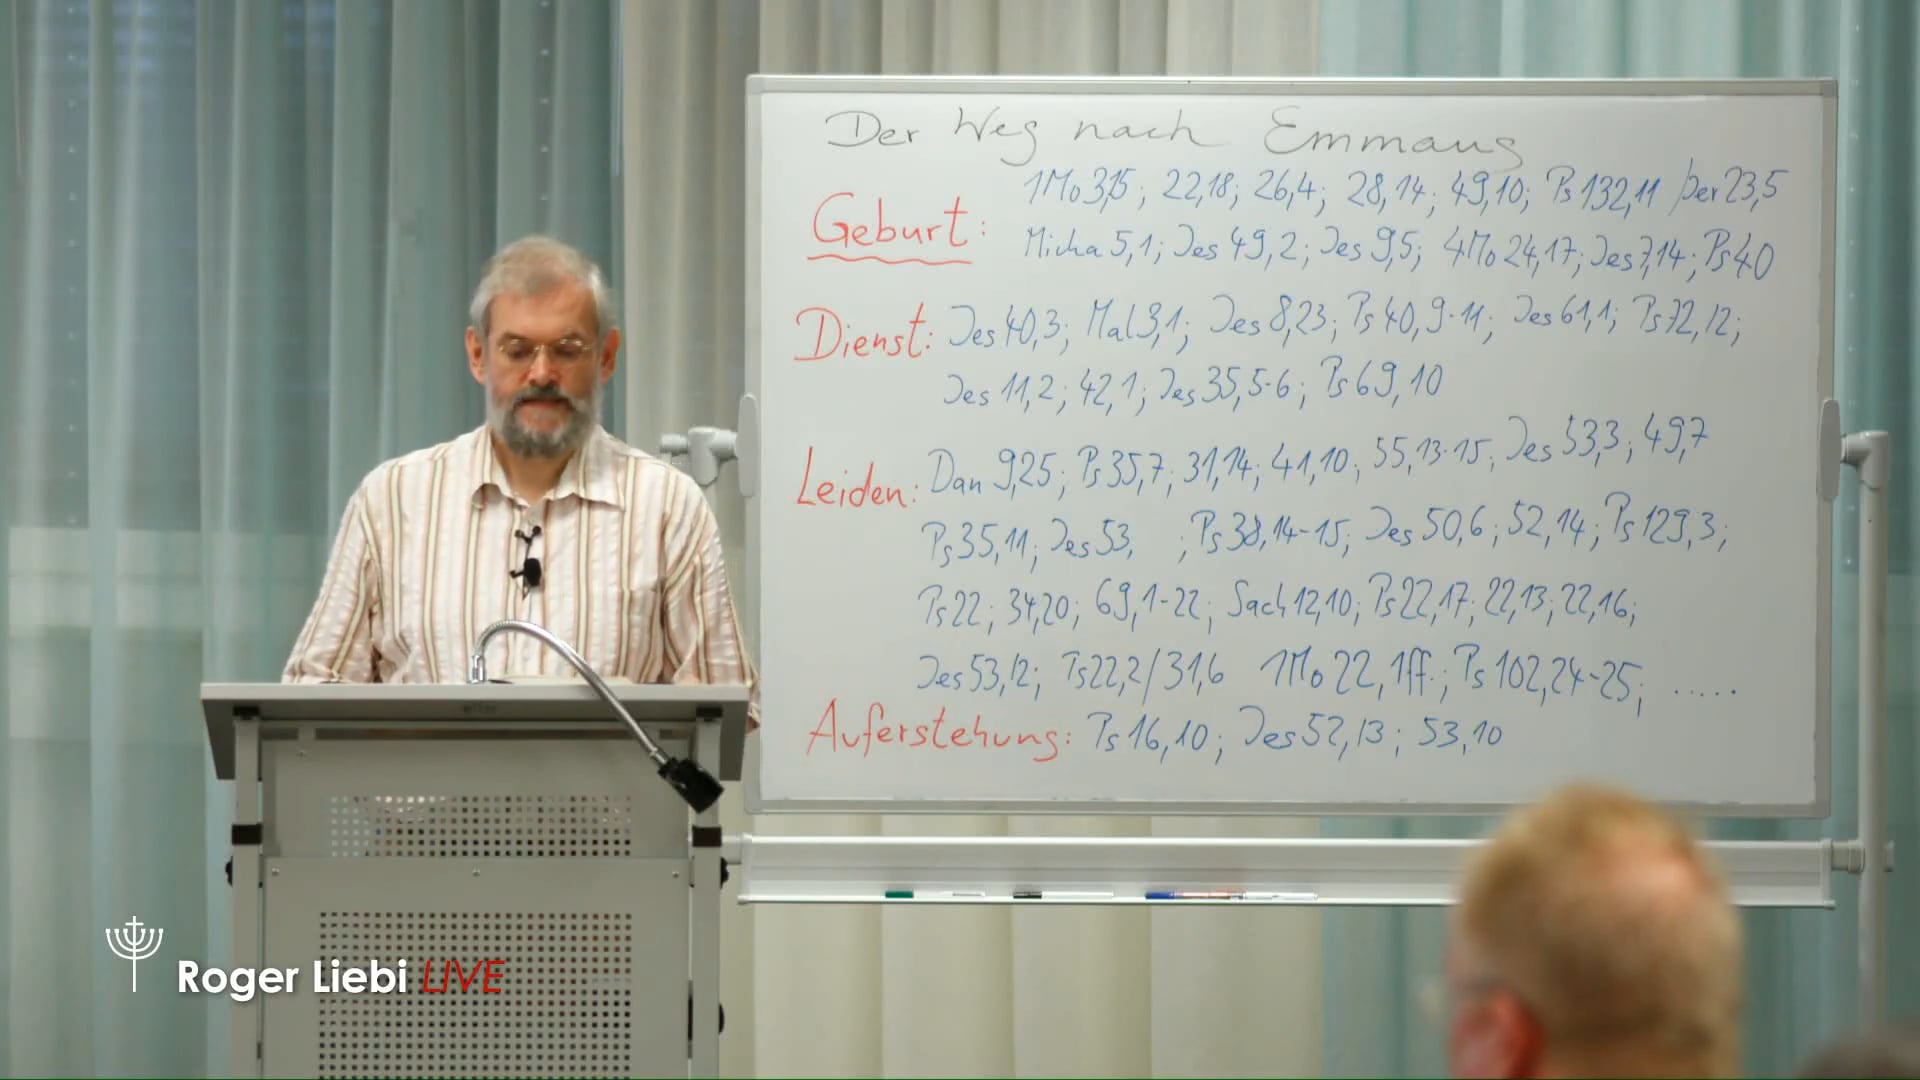 Der Weg nach Emmaus
1Mo 3,15; 22,18; 26,4; 28,14; 49,10; Ps 132,11 Jer 23,5
Geburt:
Micha 5,1; Jes 49,2; Jes 9,5; 4Mo 24,17; Jes 7,14; Ps 40
Dienst: Jes 40,3; Mal 3,1; Jes 8,23; Ps 40,9-11; Jes 61,1; Ps 72,12;
Jes 11,2; 42,1; Jes 35,5-6; Ps 69,10
Leiden: Dan 9,25; Ps 35,7; 31,14; 41,10; 55,13-15; Jes 53,3; 49,7
Ps 35,11; Jes 53, ; Ps 38,14-15; Jes 50,6; 52,14; Ps 129,3;
Ps 22; 34,20; 69,1-22; Sach 12,10; Ps 22,17; 22,13; 22,16;
Jes 53,12; Ps 22,2/31,6 1Mo 22,1ff.; Ps 102,24-25; .....
Auferstehung: Ps 16,10; Jes 52,13; 53,10
Roger Liebi LIVE